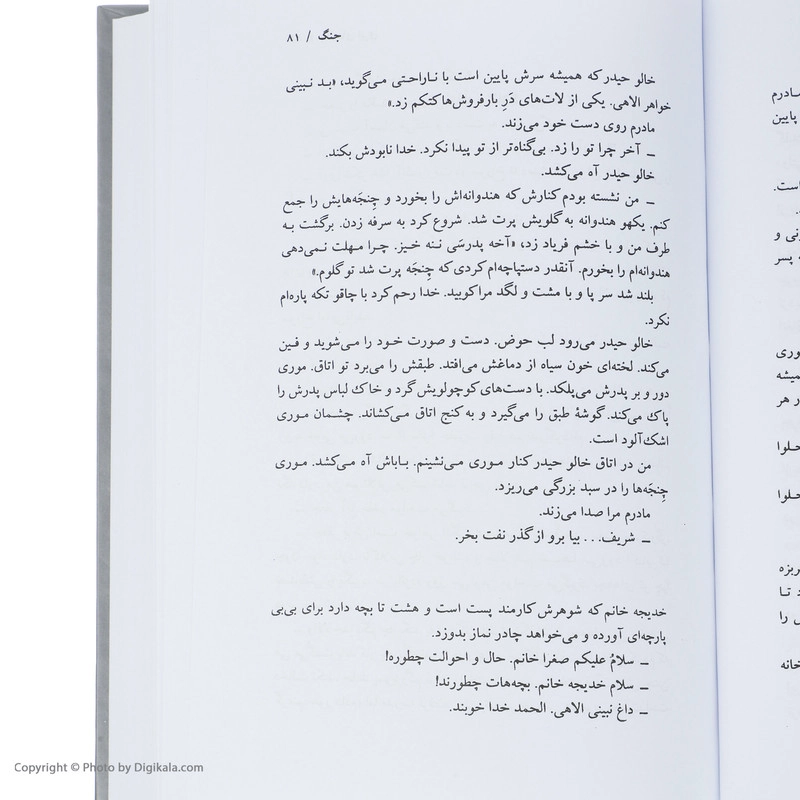 جنگ / ۸۱
خالو حیدر که همیشه سرش پایین است با ناراحتی می‌گوید، «بد نبینی
خواهر الاهی. یکی از لات‌های دَرِ بارفروش‌ها کتکم زد.»
مادرم روی دست خود می‌زند.
ـ آخر چرا تو را زد. بی‌گناه‌تر از تو پیدا نکرد. خدا نابودش بکند.
خالو حیدر آه می‌کشد.
ـ من نشسته بودم کنارش که هندوانه‌اش را بخورد و چِنجَه‌هایش را جمع
کنم. یکهو هندوانه به گلویش پرت شد. شروع کرد به سرفه زدن. برگشت به
طرف من و با خشم فریاد زد، «آخه پدرسّی ننه خیز. چرا مهلت نمی‌دهی
هندوانه‌ام را بخورم. آنقدر دستپاچه‌ام کردی که چِنجَه پرت شد تو گلوم.»
بلند شد سر پا و با مشت و لگد مرا کوبید. خدا رحم کرد با چاقو تکه پاره‌ام
نکرد.
خالو حیدر می‌رود لب حوض. دست و صورت خود را می‌شوید و فین
می‌کند. لخته‌ای خون سیاه از دماغش می‌افتد. طبقش را می‌برد تو اتاق. موری
دور و بر پدرش می‌پلکد. با دست‌های کوچولویش گرد و خاک لباس پدرش را
پاک می‌کند. گوشهٔ طبق را می‌گیرد و به کنج اتاق می‌کشاند. چشمان موری
اشک‌آلود است.
من در اتاق خالو حیدر کنار موری می‌نشینم. باباش آه می‌کشد. موری
چِنجَه‌ها را در سبد بزرگی می‌ریزد.
مادرم مرا صدا می‌زند.
ـ شریف... بیا برو از گذر نفت بخر.
خدیجه خانم که شوهرش کارمند پست است و هشت تا بچه دارد برای بی‌بی
پارچه‌ای آورده و می‌خواهد چادر نماز بدوزد.
ـ سلامُ علیکم صغرا خانم. حال و احوالت چطوره!
ـ سلام خدیجه خانم. بچه‌هات چطورند!
ـ داغ نبینی الاهی. الحمد خدا خوبند.
مادرم
پایین
است.
ونی و
پسر
وری
میشه
ر هر
حلوا
حلوا
ربزه
تا
را
خانه
Copyright © Photo by Digikala.com